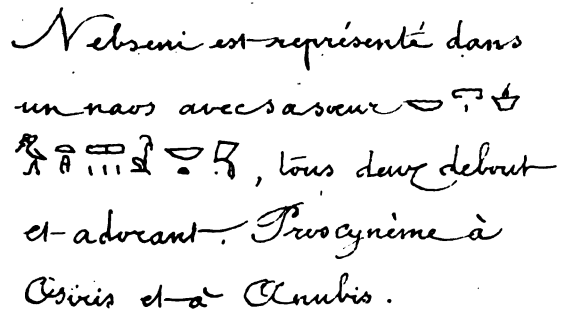 Nebseni est représenté dans
un naos avec sa soeur
, tous deux debout
et adorant. Proscynème à
Osiris et à Anubis.